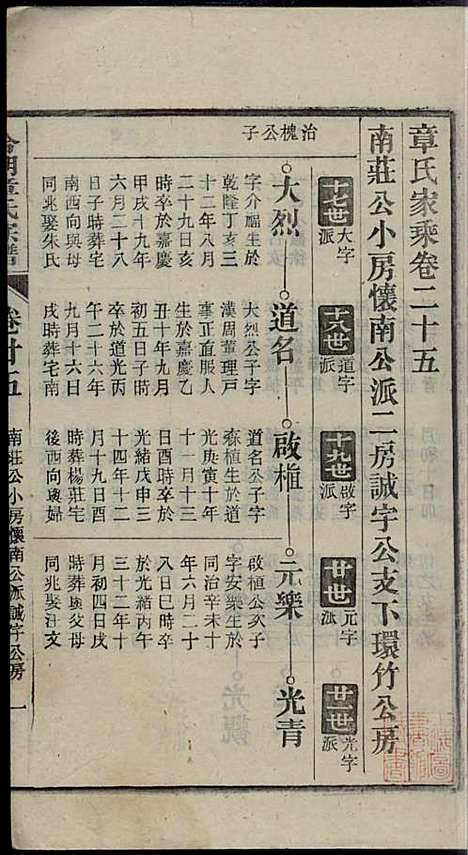 章氏家乘卷二十五
南莊公小房懷南公派二房誠字公支下環竹公房
十七世 大字派
十八世 道字派
十九世 啟字派
廿世 元字派
廿一世 光字派
治槐公子
大烈
道名
啟植
元樂
光青
字介福生於
乾隆丁亥三
十二年八月
二十九日亥
時卒於嘉慶
甲戌十九年
六月二十八
日子時葬宅
南西向與母
同兆娶朱氏
大烈公子字
漢周董理戸
事正直服人
生於嘉慶乙
丑十年九月
初五日子時
卒於道光丙
午二十六年
九月十六日
戌時葬宅南
道名公子字
森植生於道
光庚寅十年
十一月十三
日酉時卒於
光緒戊申三
十四年十二
月十九日酉
時葬楊莊宅
後西向娶婦
啟植公次子
字安樂生於
同治辛未十
年六月二十
八日巳時卒
於光緒丙午
三十二年十
月初四日戌
時葬與父母
同兆娶汪文
章氏家譜
卷廿五
南莊公小房懷南公派誠字公房
一